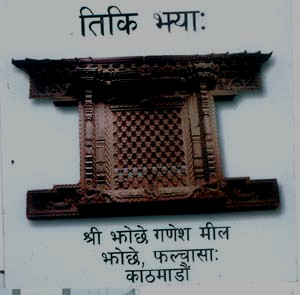 तिकि झ्याः
श्री झोछे गणेश मील
झोछे, फल्चासाः
काठमाडौं